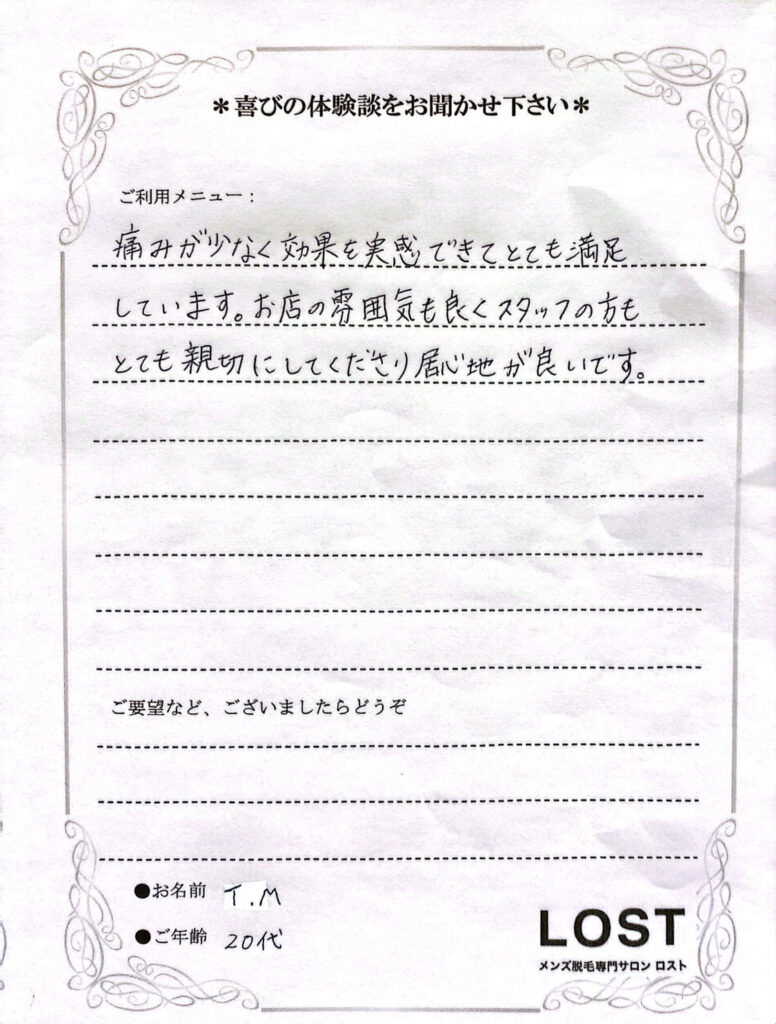 ＊喜びの体験談をお聞かせ下さい＊
ご利用メニュー：
痛みが少なく効果を実感できてとても満足
しています。お店の雰囲気も良くスタッフの方も
とても親切にしてくださり居心地が良いです。
ご要望など、ございましたらどうぞ
●お名前 T.M
●ご年齢 20代
LOST
メンズ脱毛専門サロン ロスト